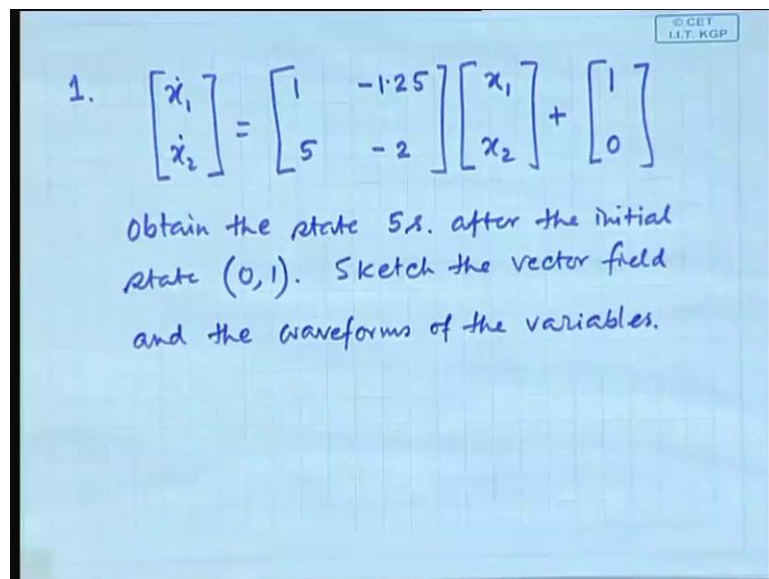 © CET
I.I.T. KGP
1. [ẋ₁ ẋ₂] = [1 -1.25 5 -2] [x₁ x₂] + [1 0]
Obtain the state 5s. after the initial
state (0,1). Sketch the vector field
and the waveforms of the variables.